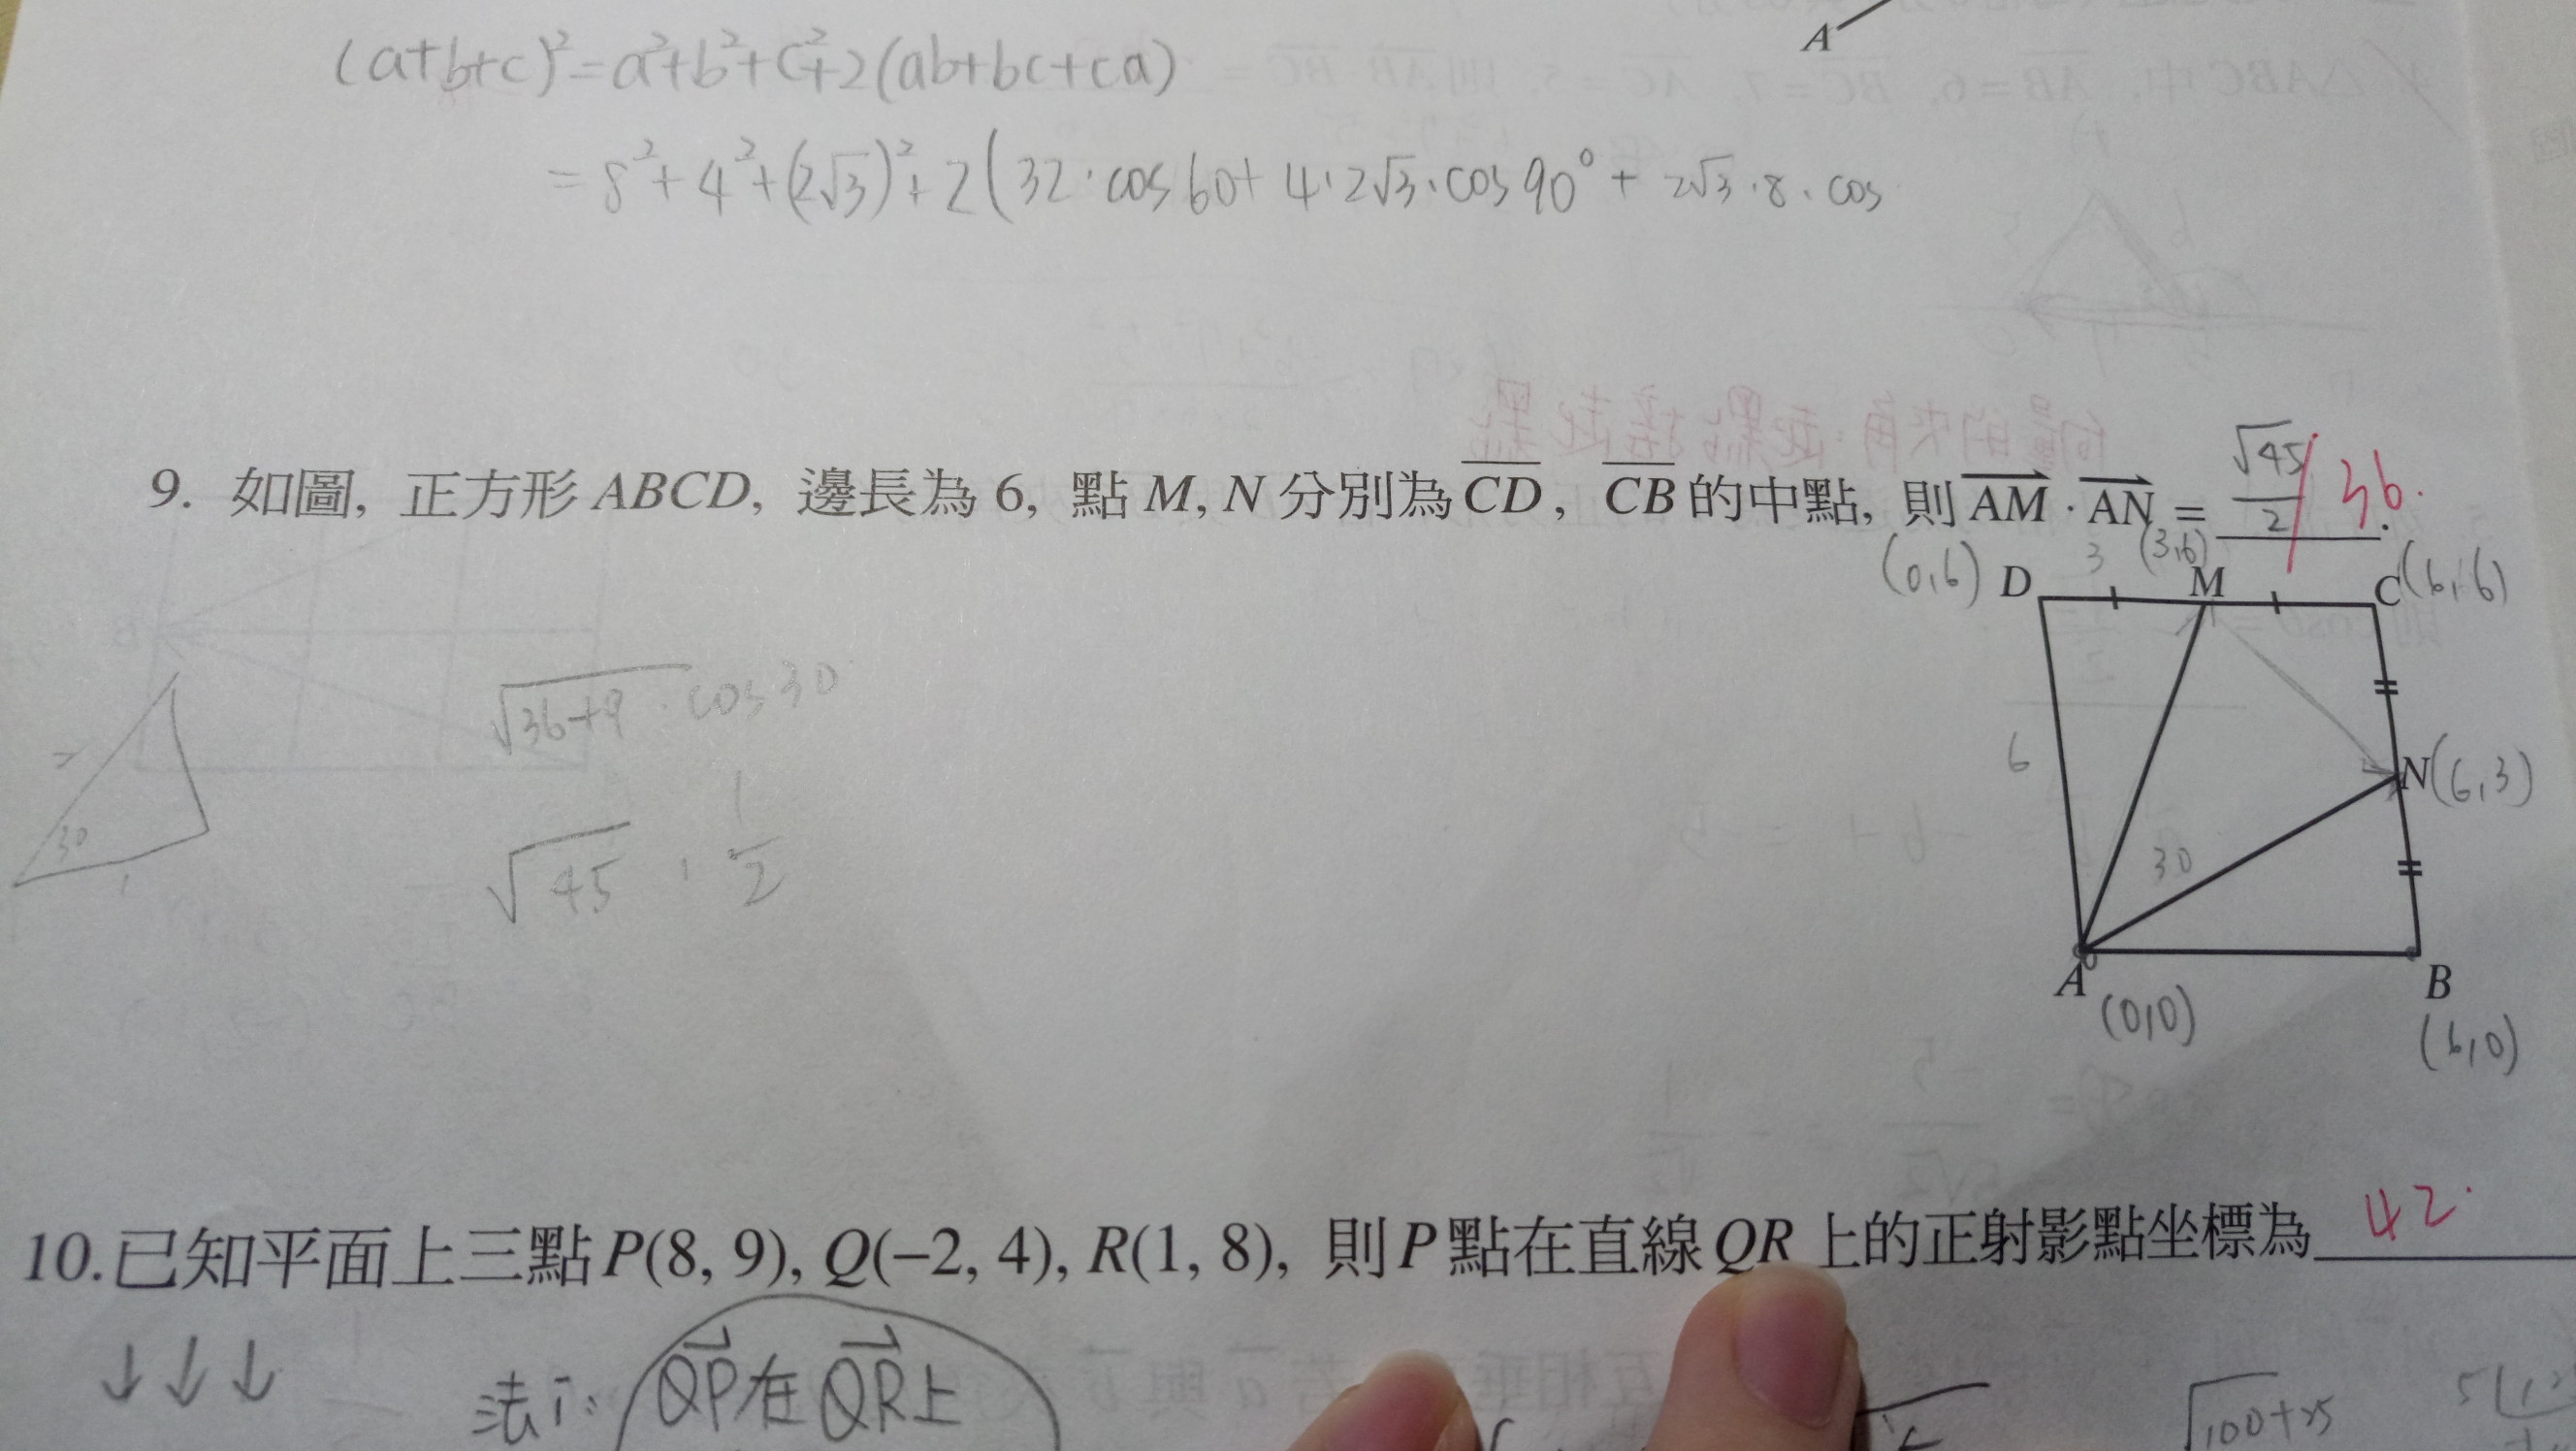 A
(a+b+c)²=a²+b²+c²+2(ab+bc+ca)
=8²+4²+(2√3)²+2(32·cos60+4·2√3·cos90°+2√3·8·cos
9. 如圖, 正方形 ABCD, 邊長為 6, 點 M, N 分別為 CD, CB 的中點, 則 AM · AN = √45/2 36.
(0,6) D 3 (3,6) M C (6,6)
√36+9 · cos30
6
N (6,3)
30
√45 · 1/2
30
1
A (0,0)
B (6,0)
10.已知平面上三點 P(8, 9), Q(−2, 4), R(1, 8), 則 P 點在直線 QR 上的正射影點坐標為 42.
↓↓↓ 法i: QP在QR上
√100+25